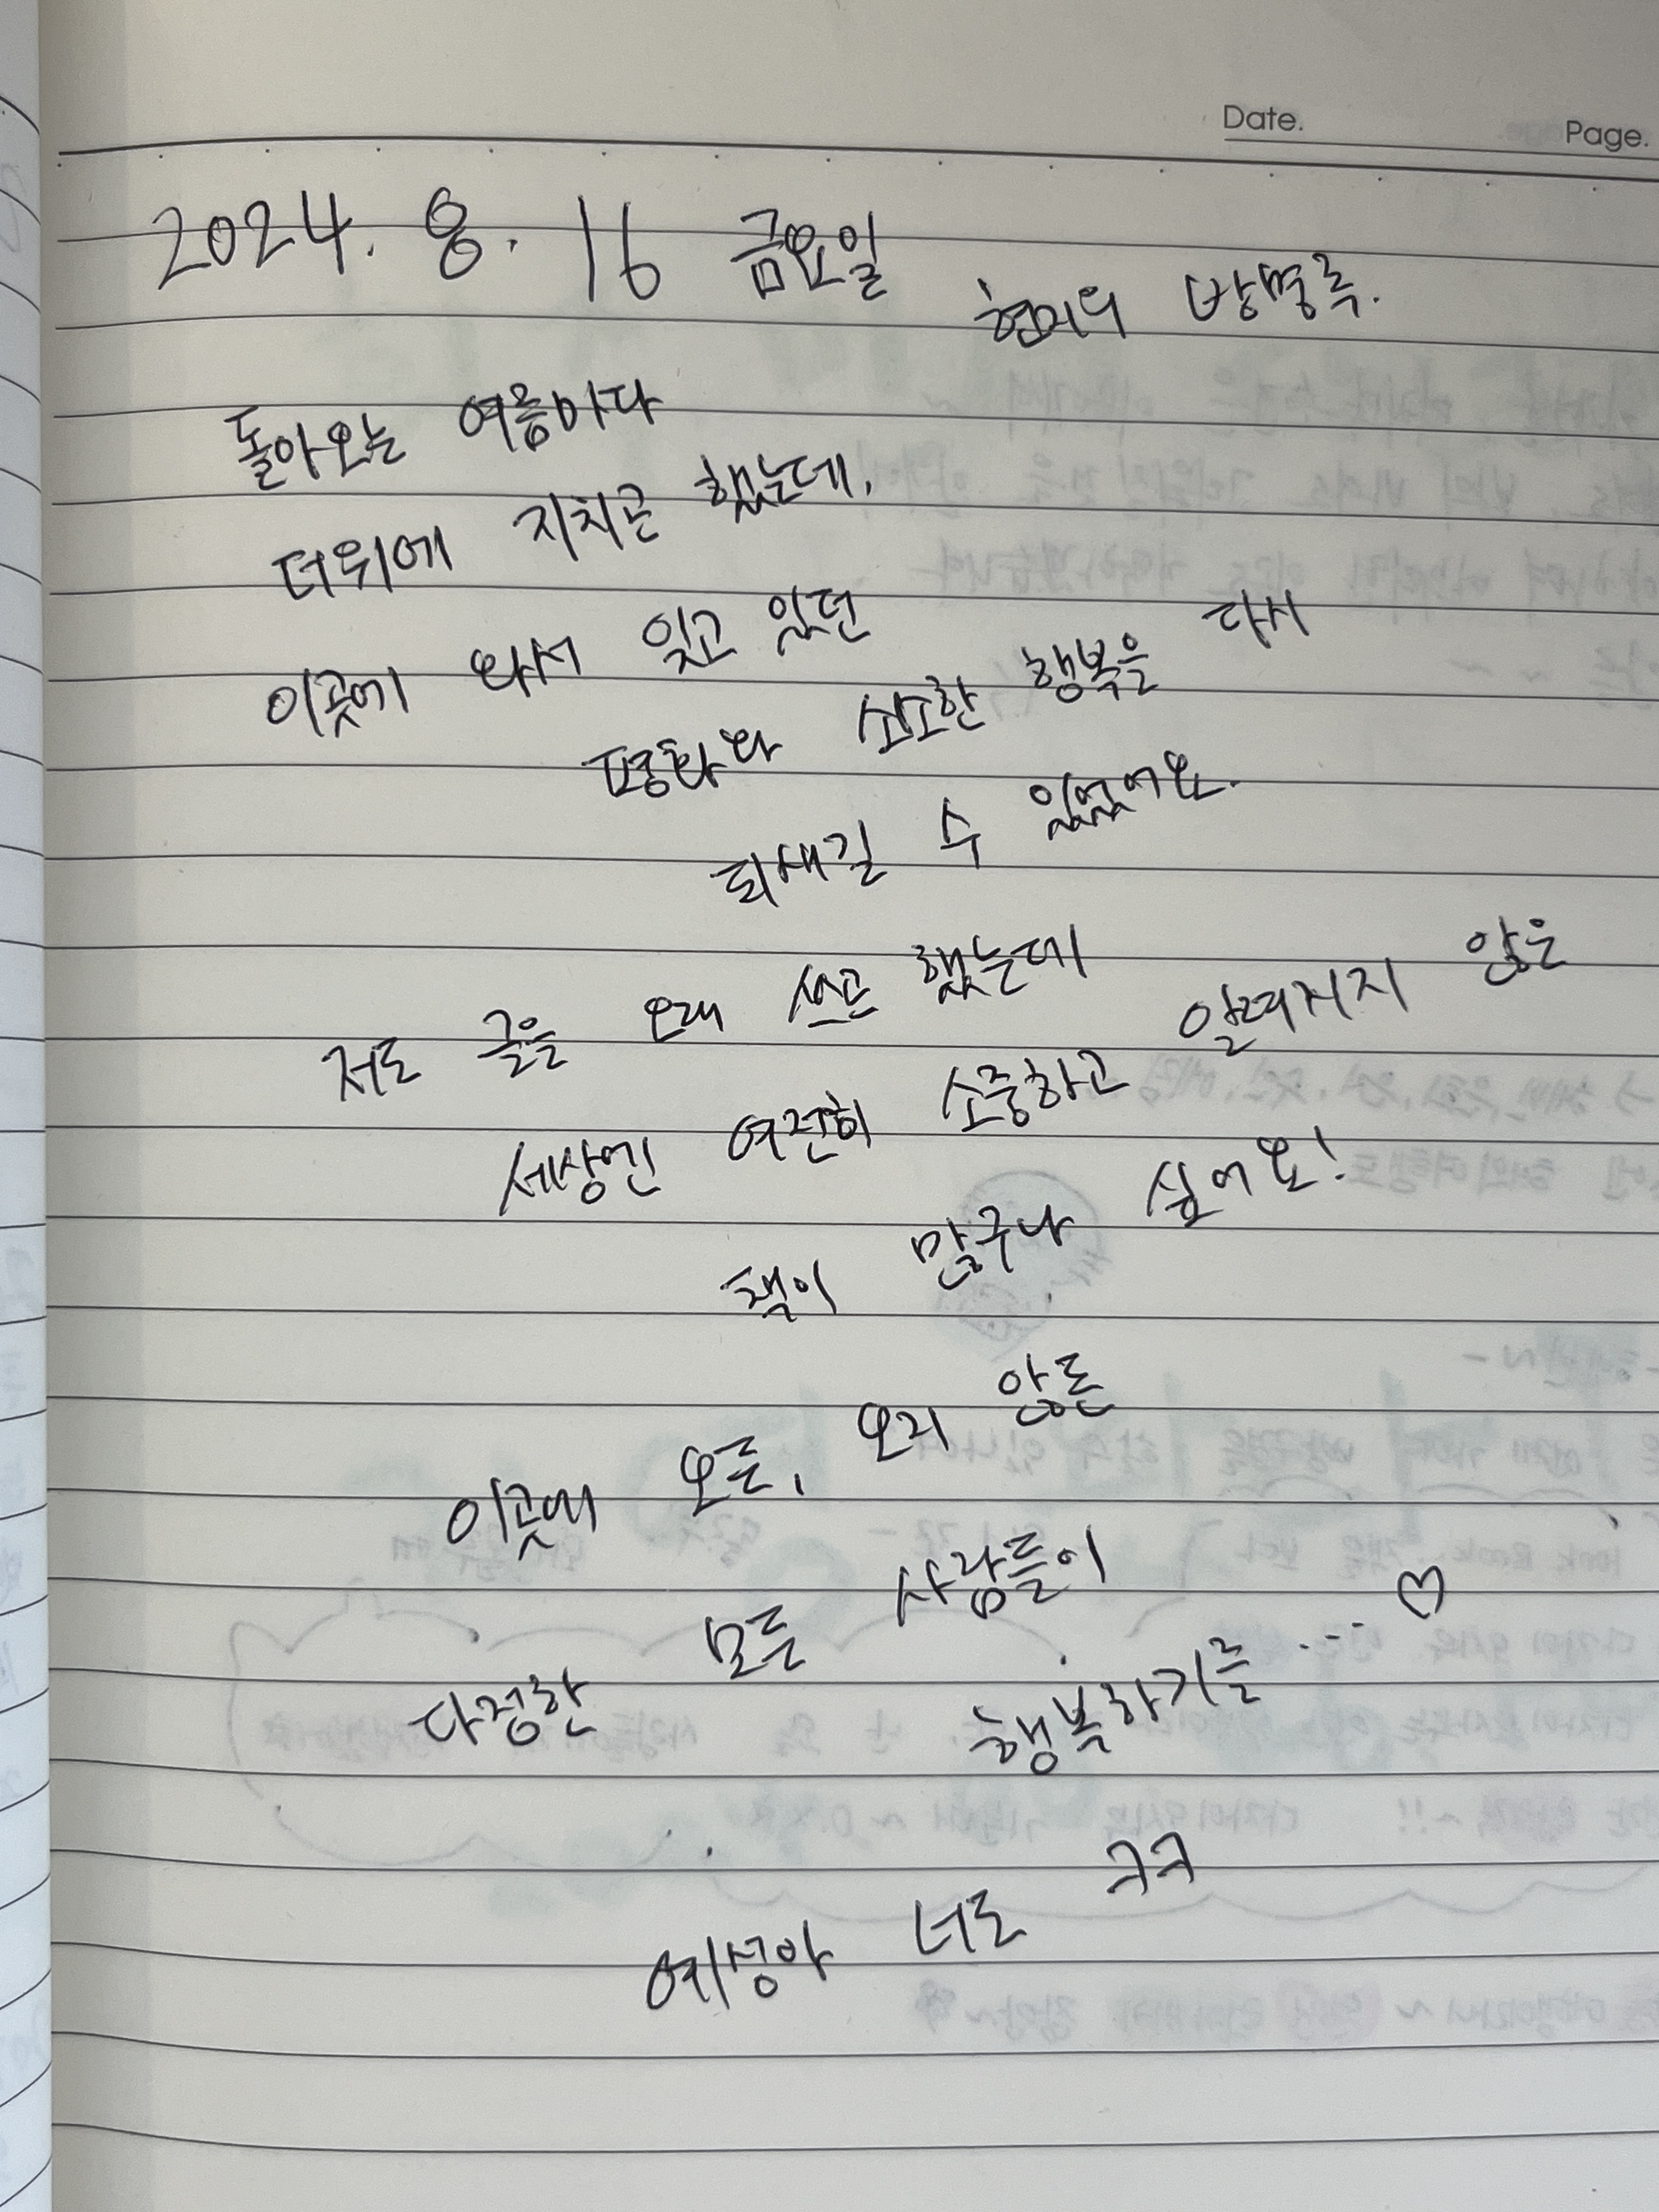 Date.
Page.
2024. 8. 16 금요일
현지의 방명록.
돌아오는 여름마다
더위에 지치곤 했는데,
이곳에 와서 잊고 있던
평화와 소소한 행복을 다시
되새길 수 있었어요.
저도 글을 오래 쓰곤 했는데
세상엔 여전히 소중하고 알려지지 않은
책이 많구나 싶어요!
이곳에 오든, 오지 않든
다정한 모든 사람들이
행복하기를 ... ♡
예성아 너도 ㅋㅋ